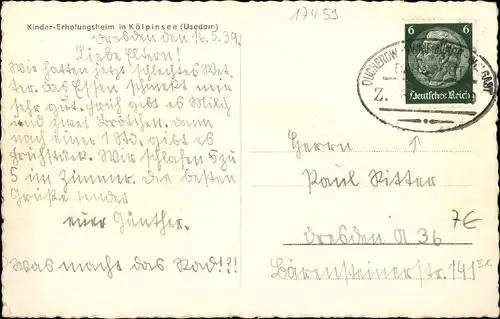 17459
Kinder-Erholungsheim in Kölpinsee (Usedom)
Dresden den 16.5.39.
Liebe Eltern!
Wir hatten jetzt schlechtes Wet-
ter. das Essen schmekt mir
sehr gut. früh gibt es Milch
und zwei Brötchen. dann
nach einer 1 Std. gibt es
frühstück. Wir schlafen 5 zu
5 im Zimmer. die besten
Grüße sendet
euer Günther.
Was macht das Rad!?!
6 6
Deutsches Reich
DUCHEROW
Z.
Herrn
Paul Ritter
Dresden A 36
Bärensteinerstr. 141
7€